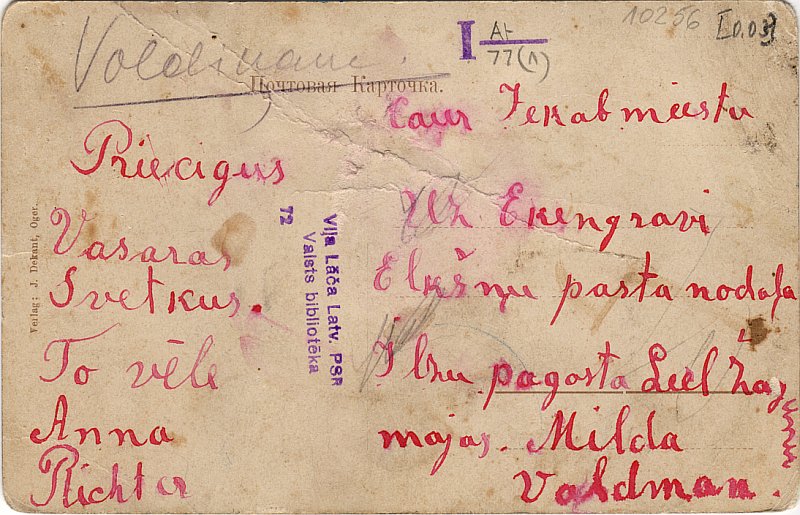 10256 [0.03]
I A1
77(1)
Почтовая Карточка.
Priecigus
Vasaras
Svetkus.
To vēle
Anna
Richter
Caur Jekabmiestu
Uz. Ekengravi
Elkšņu pasta nodaļa
pagasta Leel
majas. Milda
Valdman.
Viļa Lāča Latv. PSR
Valsts bibliotēka
72
Verlag: J. Dekant, Oger.